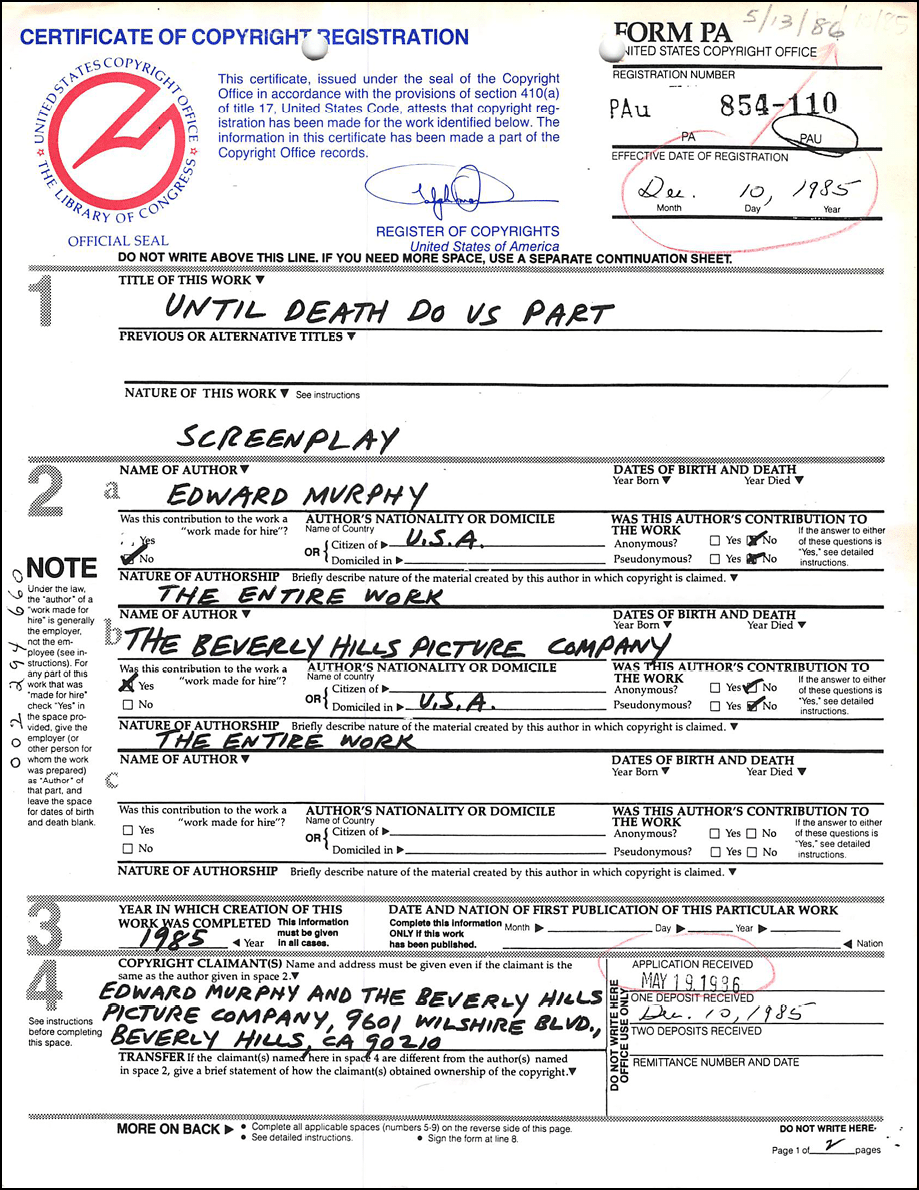 CERTIFICATE OF COPYRIGHT REGISTRATION
FORM PA
5/13/86
UNITED STATES COPYRIGHT OFFICE
UNITED STATES COPYRIGHT OFFICE
THE LIBRARY OF CONGRESS
OFFICIAL SEAL
This certificate, issued under the seal of the Copyright
Office in accordance with the provisions of section 410(a)
of title 17, United States Code, attests that copyright reg-
istration has been made for the work identified below. The
information in this certificate has been made a part of the
Copyright Office records.
REGISTER OF COPYRIGHTS
United States of America
REGISTRATION NUMBER
PAu 854-110
PA PAU
EFFECTIVE DATE OF REGISTRATION
Dec. 10, 1985
Month Day Year
DO NOT WRITE ABOVE THIS LINE. IF YOU NEED MORE SPACE, USE A SEPARATE CONTINUATION SHEET.
1
TITLE OF THIS WORK ▼
UNTIL DEATH DO US PART
PREVIOUS OR ALTERNATIVE TITLES ▼
NATURE OF THIS WORK ▼ See instructions
SCREENPLAY
2
a
NAME OF AUTHOR ▼
EDWARD MURPHY
DATES OF BIRTH AND DEATH
Year Born ▼ Year Died ▼
Was this contribution to the work a
"work made for hire"?
Yes
No
AUTHOR'S NATIONALITY OR DOMICILE
Name of Country
OR { Citizen of ▶ U.S.A.
Domiciled in ▶
WAS THIS AUTHOR'S CONTRIBUTION TO
THE WORK
Anonymous? Yes No
Pseudonymous? Yes No
If the answer to either
of these questions is
"Yes," see detailed
instructions.
NATURE OF AUTHORSHIP Briefly describe nature of the material created by this author in which copyright is claimed. ▼
THE ENTIRE WORK
b
NAME OF AUTHOR ▼
THE BEVERLY HILLS PICTURE COMPANY
DATES OF BIRTH AND DEATH
Year Born ▼ Year Died ▼
Was this contribution to the work a
"work made for hire"?
Yes
No
AUTHOR'S NATIONALITY OR DOMICILE
Name of country
OR { Citizen of ▶
Domiciled in ▶ U.S.A.
WAS THIS AUTHOR'S CONTRIBUTION TO
THE WORK
Anonymous? Yes No
Pseudonymous? Yes No
If the answer to either
of these questions is
"Yes," see detailed
instructions.
NATURE OF AUTHORSHIP Briefly describe nature of the material created by this author in which copyright is claimed. ▼
THE ENTIRE WORK
c
NAME OF AUTHOR ▼
DATES OF BIRTH AND DEATH
Year Born ▼ Year Died ▼
Was this contribution to the work a
"work made for hire"?
Yes
No
AUTHOR'S NATIONALITY OR DOMICILE
Name of Country
OR { Citizen of ▶
Domiciled in ▶
WAS THIS AUTHOR'S CONTRIBUTION TO
THE WORK
Anonymous? Yes No
Pseudonymous? Yes No
If the answer to either
of these questions is
"Yes," see detailed
instructions.
NATURE OF AUTHORSHIP Briefly describe nature of the material created by this author in which copyright is claimed. ▼
NOTE
Under the law,
the "author" of a
"work made for
hire" is generally
the employer,
not the em-
ployee (see in-
structions). For
any part of this
work that was
"made for hire"
check "Yes" in
the space pro-
vided, give the
employer (or
other person for
whom the work
was prepared)
as "Author" of
that part, and
leave the space
for dates of birth
and death blank.
3
YEAR IN WHICH CREATION OF THIS
WORK WAS COMPLETED This information
must be given
in all cases.
1985 ◀ Year
DATE AND NATION OF FIRST PUBLICATION OF THIS PARTICULAR WORK
Complete this information
ONLY if this work
has been published.
Month ▶ Day ▶ Year ▶
◀ Nation
4
See instructions
before completing
this space.
COPYRIGHT CLAIMANT(S) Name and address must be given even if the claimant is the
same as the author given in space 2.▼
EDWARD MURPHY AND THE BEVERLY HILLS
PICTURE COMPANY, 9601 WILSHIRE BLVD.,
BEVERLY HILLS, CA 90210
TRANSFER If the claimant(s) named here in space 4 are different from the author(s) named
in space 2, give a brief statement of how the claimant(s) obtained ownership of the copyright.▼
DO NOT WRITE HERE
OFFICE USE ONLY
APPLICATION RECEIVED
MAY 19.1986
ONE DEPOSIT RECEIVED
Dec. 10, 1985
TWO DEPOSITS RECEIVED
REMITTANCE NUMBER AND DATE
MORE ON BACK ▶
• Complete all applicable spaces (numbers 5-9) on the reverse side of this page.
• See detailed instructions.
• Sign the form at line 8.
DO NOT WRITE HERE
Page 1 of 2 pages